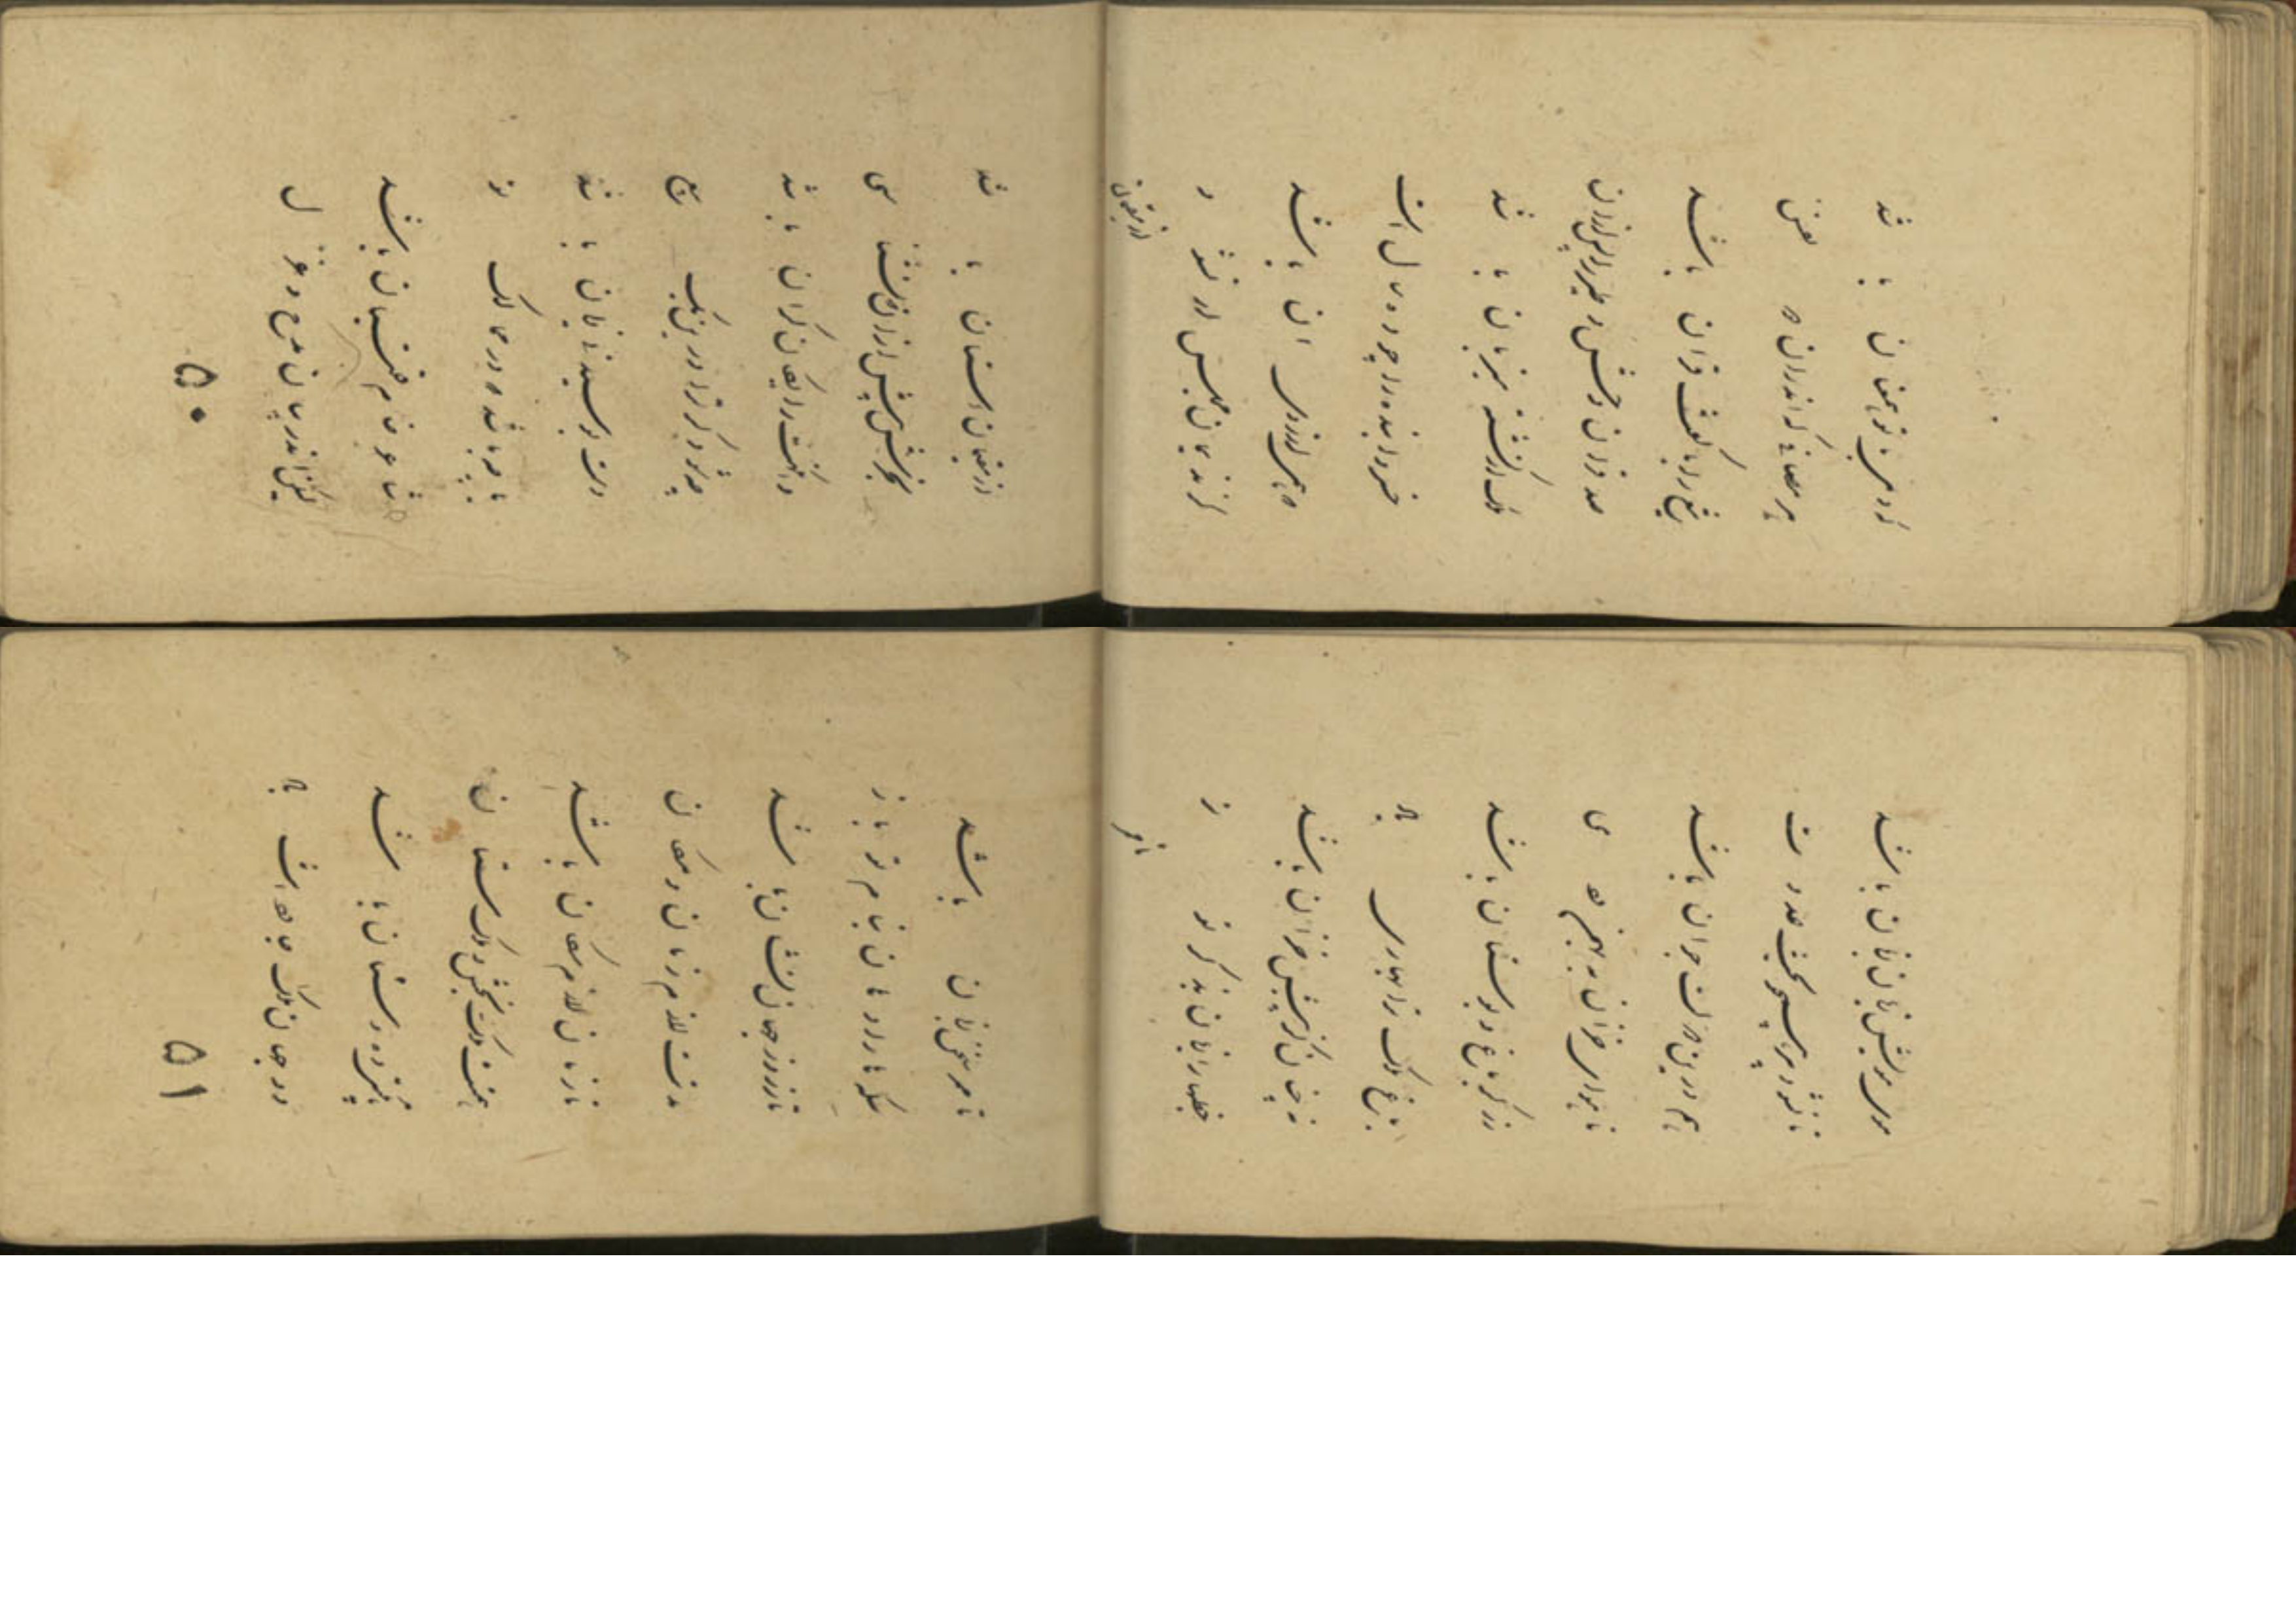 با تو همعنان باشد
هر مصافی که اندران دو نفس
تیغ را با کفت قران باشد
صد قران وحش و طیر را پس ازان
فلک از کشته میزبان باشد
خسروا بنده را چو ده سال است
که همی آرزوی آن باشد
کز ندیمان مجلس ار نشود
از مقیمان
از مقیمان آستان باشد
بخرش پیش ازان که بشناسی
وانگهت رایکان کران باشد
چه شود کر ترا درین یک بیع
دست بوسیدنی زیان باشد
یا چه باشد که در ممالک تو
شاعری خام قلتبان باشد
لیکن اندر میان مدح و غزل
۵۰
موی مویش زبان باشد
تا نشود پیر همچو بخت عدوت
هم درین دولت جوان باشد
تا هوای خزان به بهمن و دی
زرکر باغ و بوستان باشد
باغ ملک ترا بهاری باد
نه چنان کز پسش خزان باشد
خطبها را زبان بذکر تو تر
تا ممر
تا ممر سخن زبان باشد
سکها را دهان بنام تو باز
تا ز زر در جهان نشان باشد
مدتت لازم زمان و مکان
تا زمان لازم مکان باشد
همتت ملک بخش و ملک ستان
ده و ستان باشد
در جهان ملک جاودانت باد
۵۱